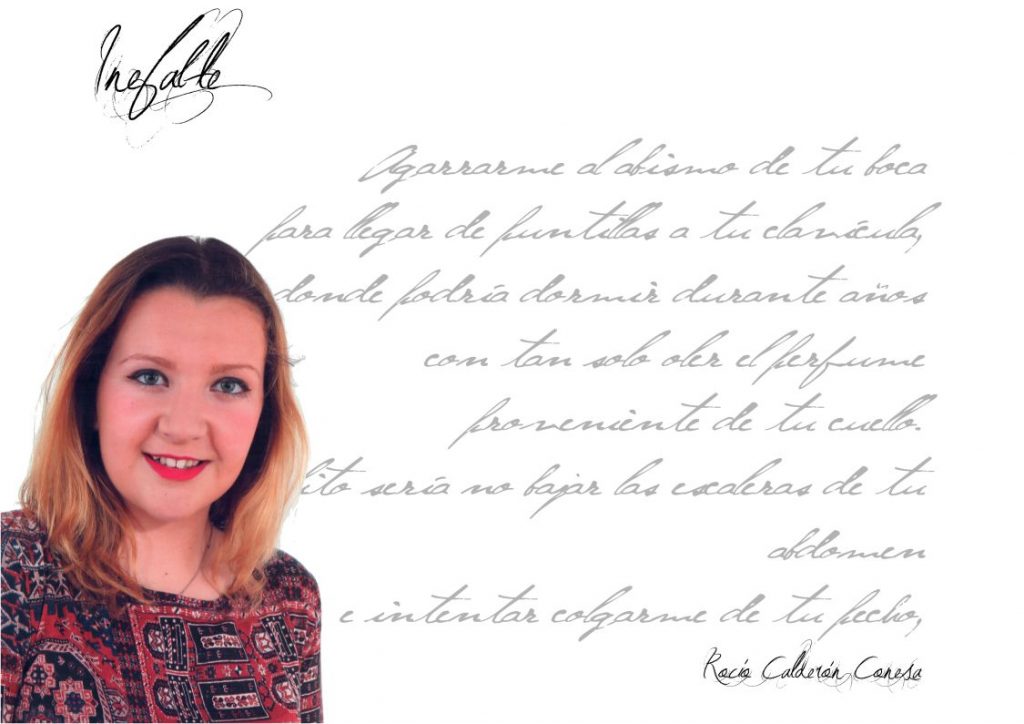 Inefable
Agarrarme al abismo de tu boca
para llegar de puntillas a tu clavícula,
donde podría dormir durante años
con tan solo oler el perfume
proveniente de tu cuello.
lito sería no bajar las escaleras de tu
abdomen
e intentar colgarme de tu pecho,
Rocío Calderón Conesa